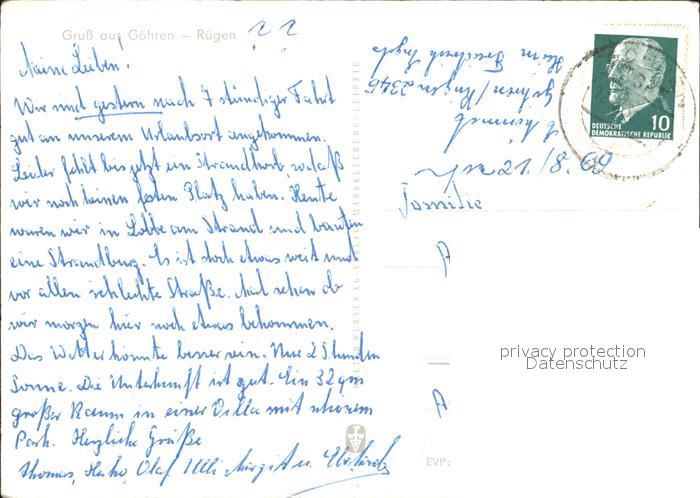 Gruß aus Göhren – Rügen
Meine Lieben!
Wir sind gestern nach 7 stündiger Fahrt
gut an unserem Urlaubsort angekommen.
Leider fehlt bis jetzt ein Strandkorb, sodaß
wir noch keinen festen Platz haben. Heute
waren wir in Lobbe am Strand und bauten
eine Strandburg. Es ist doch etwas weit und
vor allen schlechte Straße. Mal sehen ob
wir morgen hier noch etwas bekommen.
Das Wetter könnte besser sein. Nur 2 Stunden
Sonne. Die Unterkunft ist gut. Ein 32 qm
großer Raum in einer Villa mit schönem
Park. Herzliche Grüße
Thomas, Heiko, Olaf Ulli Margit u.
VERLAG MARKKLEEBERG - LEIPZIG
Heim Friedrich Engels
Göhren/Rügen 2346
21/8.69
Familie
DEUTSCHE
DEMOKRATISCHE REPUBLIK
10
privacy protection
Datenschutz
EVP: